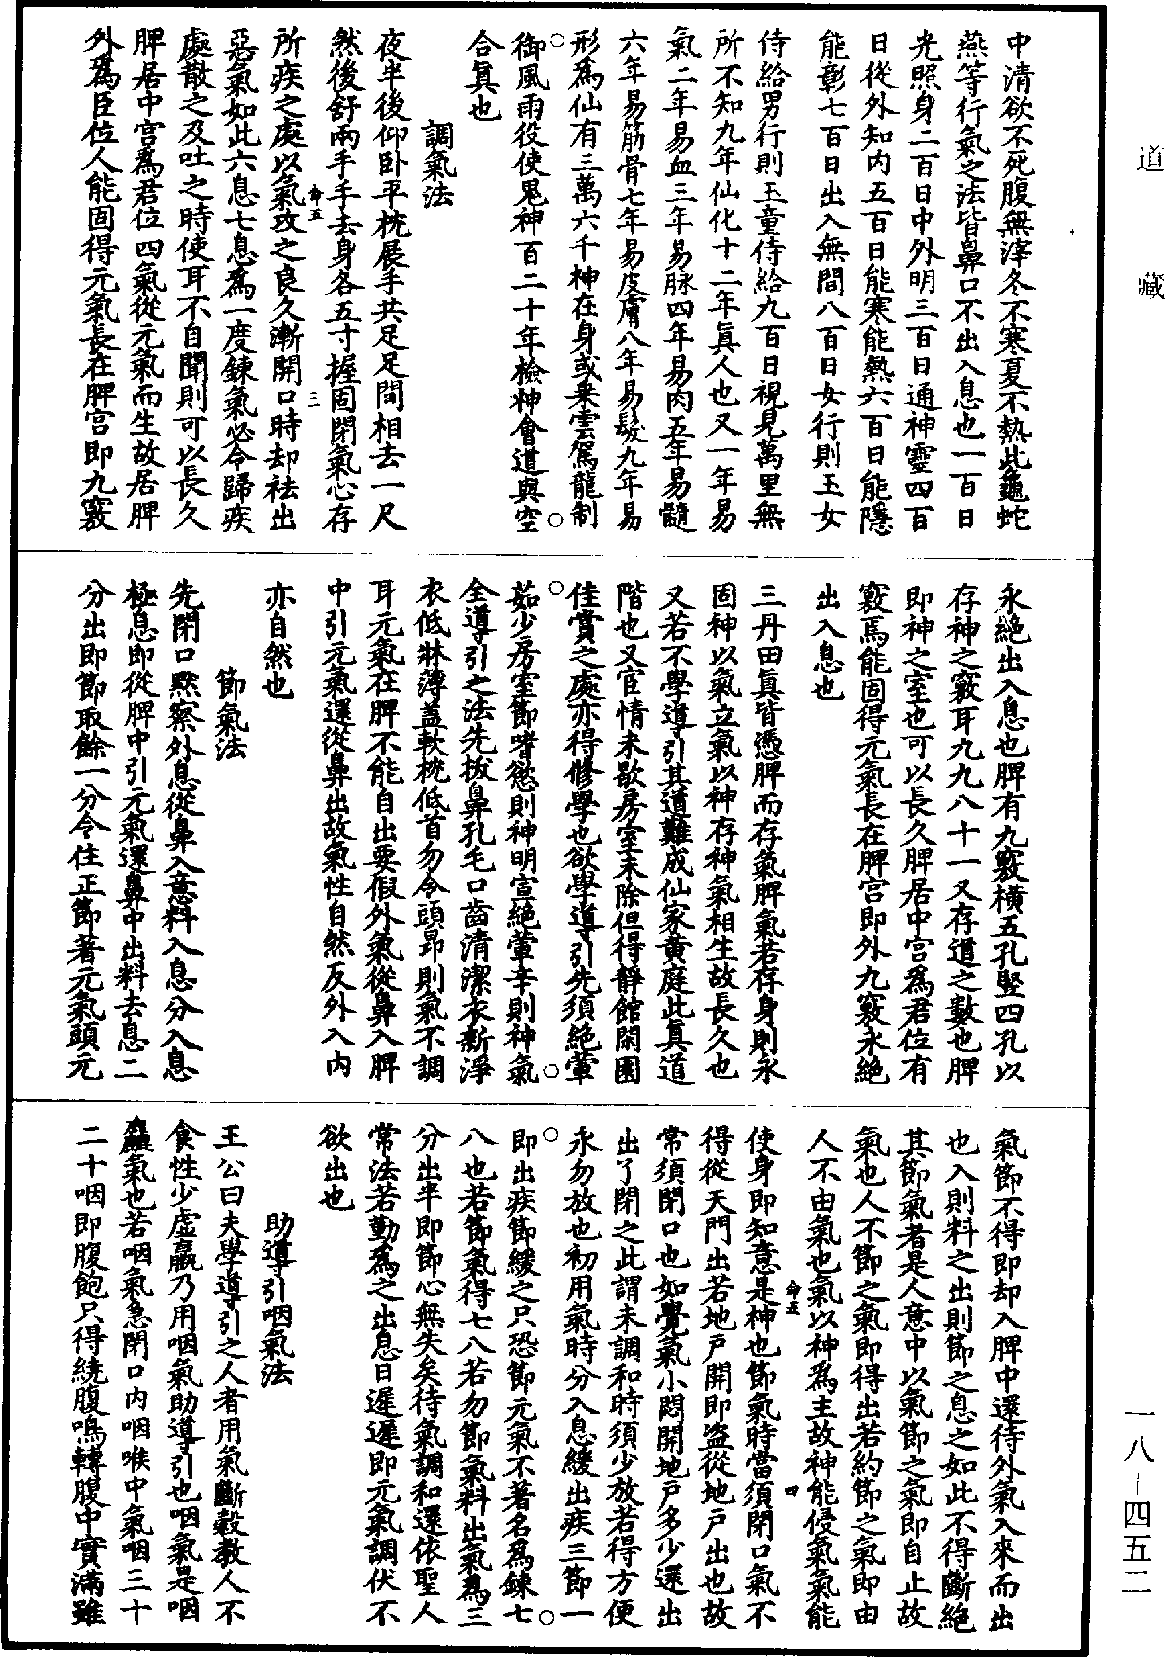 道藏
中清欲不死腹無滓冬不寒夏不熱此龜蛇
燕等行氣之法皆鼻口不出入息也一百日
光照身二百日中外明三百日通神靈四百
日從外知内五百日能寒能熱六百日能隱
能彰七百日出入無間八百日女行則玉女
侍給男行則玉童侍給九百日視見萬里無
所不知九年仙化十二年真人也又一年易
氣二年易血三年易脉四年易肉五年易髓
六年易筋骨七年易皮膚八年易髮九年易
形爲仙有三萬六千神在身或乗雲駕龍制
御風雨役使鬼神百二十年檢神會道與空
合真也
調氣法
夜半後仰卧平枕展手共足足間相去一尺
然後舒兩手手去身各五寸握固閉氣心存
命五 三
所疾之處以氣攻之良久漸開口時却祛出
惡氣如此六息七息爲一度鍊氣必令歸疾
處散之及吐之時使耳不自聞則可以長久
脾居中宫爲君位四氣從元氣而生故居脾
外爲臣位人能固得元氣長在脾宫即九竅
永絶出入息也脾有九竅橫五孔竪四孔以
存神之竅耳九九八十一又存道之數也脾
即神之室也可以長久脾居中宫爲君位有
竅焉能固得元氣長在脾宫即外九竅永絶
出入息也
三丹田真皆憑脾而存氣脾氣若存身則永
固神以氣立氣以神存神氣相生故長久也
又若不學導引其道難成仙家黄庭此真道
階也又宦情未歇房室未除但得靜館閑園
佳賞之處亦得修學也欲學導引先須絶葷
茹少房室節嗜慾則神明宣絶葷辛則神氣
全導引之法先拔鼻孔毛口齒清潔衣新淨
衣低牀薄蓋軟枕低首勿令頭昂則氣不調
耳元氣在脾不能自出要假外氣從鼻入脾
中引元氣還從鼻出故氣性自然反外入内
亦自然也
節氣法
先閉口黙察外息從鼻入意料入息分入息
極息即從脾中引元氣還鼻中出料去息二
分出即節取餘一分令住正節著元氣頭元
氣節不得即却入脾中還待外氣入來而出
也入則料之出則節之息之如此不得斷絶
其節氣者是人意中以氣節之氣即自止故
氣也人不節之氣即得出若約節之氣即由
人不由氣也氣以神爲主故神能侵氣氣能
命五 四
使身即知意是神也節氣時當須閉口氣不
得從天門出若地戸開即盗從地戸出也故
常須閉口也如覺氣小悶開地戸多少還出
出了閉之此謂未調和時須少放若得方便
永勿放也初用氣時分入息緩出疾三節一
即出疾節緩之只恐節元氣不著名爲鍊七
八也若節氣得七八若勿節氣料出氣爲三
分出半即節心無失矣待氣調和還依聖人
常法若勤爲之出息日遲遲即元氣調伏不
欲出也
助導引咽氣法
王公曰夫學導引之人者用氣斷穀教人不
食性少虚羸乃用咽氣助導引也咽氣是咽
麤氣也若咽氣急閉口内咽喉中氣咽三十
二十咽即腹飽只得繞腹鳴轉腹中實滿雖
一八-四五二